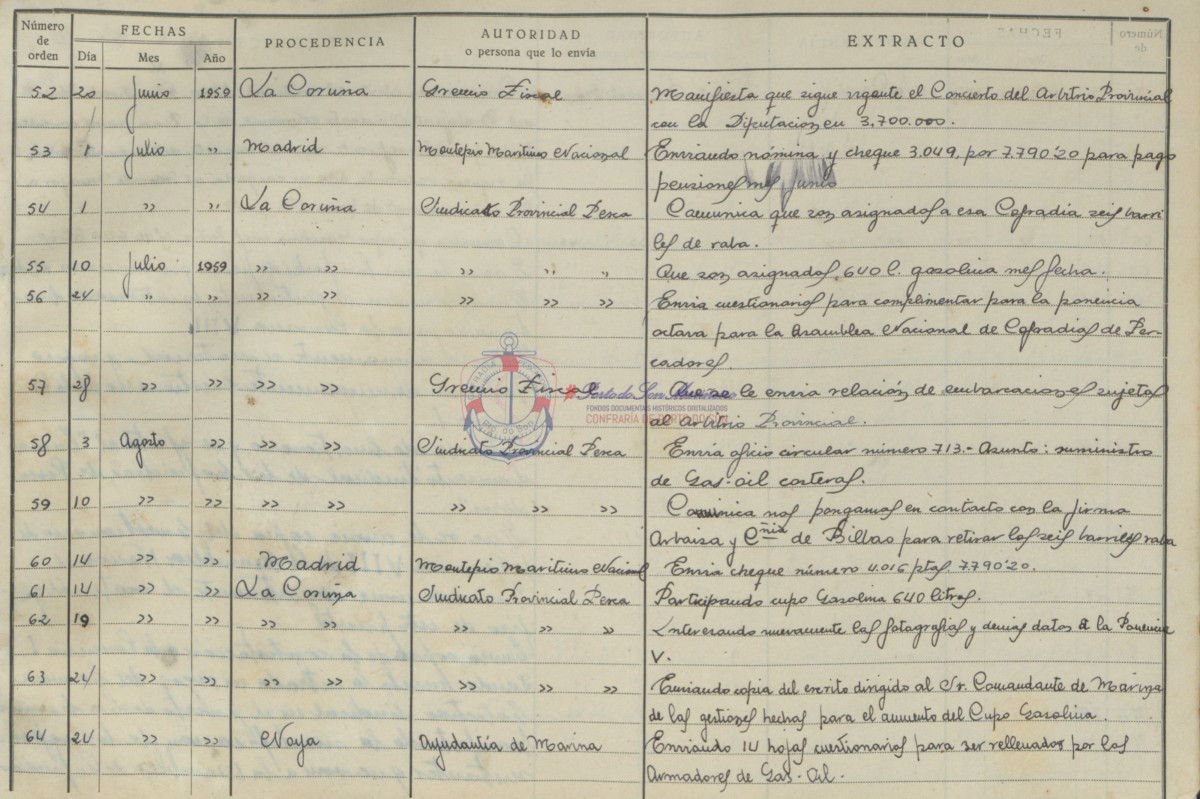 Número de orden FECHAS PROCEDENCIA AUTORIDAD o persona que lo envía EXTRACTO
Día Mes Año
52 20 Junio 1959 La Coruña Gremio Fiscal Manifiesta que sigue vigente el Concierto del Arbitrio Provincial
con la Diputacion en 3,700.000.
53 1 Julio " Madrid Montepio Maritimo Nacional Enviando nómina y cheque 3.049, por 7.790'20 para pago
pensiones mes Junio
54 1 " " La Coruña Sindicato Provincial Pesca Comunica que son asignados a esa Cofradia seis barri
les de raba.
55 10 Julio 1959 " " " " " Que son asignados 640 l. gasolina mes fecha.
56 24 " " " " " " " Envia cuestionarios para complimentar para la ponencia
octava para la Asamblea Nacional de Cofradias de Pes-
cadores.
57 28 " " " " Gremio Fiscal Que se le envia relación de embarcaciones sujetas
al Arbitrio Provincial.
58 3 Agosto " " " Sindicato Provincial Pesca Envia oficio circular número 713.- Asunto: suministro
de Gas-oil costeras.
59 10 " " " " " " " Comunica nos pongamos en contacto con la firma
Arbaiza y Cñia de Bilbao para retirar los seis barriles raba
60 14 " " Madrid Montepio Maritimo Nacional Envia cheque número 4.016 ptas 7.790'20.
61 14 " " La Coruña Sindicato Provincial Pesca Participando cupo Gasolina 640 litros.
62 19 " " " " " " " Interesando nuevamente las fotografias y demas datos a la Ponencia
V.
63 24 " " " " " " " Enviando copia del escrito dirigido al Sr. Comandante de Marina
de las gestiones hechas para el aumento del Cupo Gasolina.
64 24 " " Noya Ayudantía de Marina Enviando 14 hojas cuestionarios para ser rellenados por los
Armadores de Gas-Oil.
FONDOS DOCUMENTAIS HISTÓRICOS DIXITALIZADOS
CONFRARÍA DE PORTO DO SON